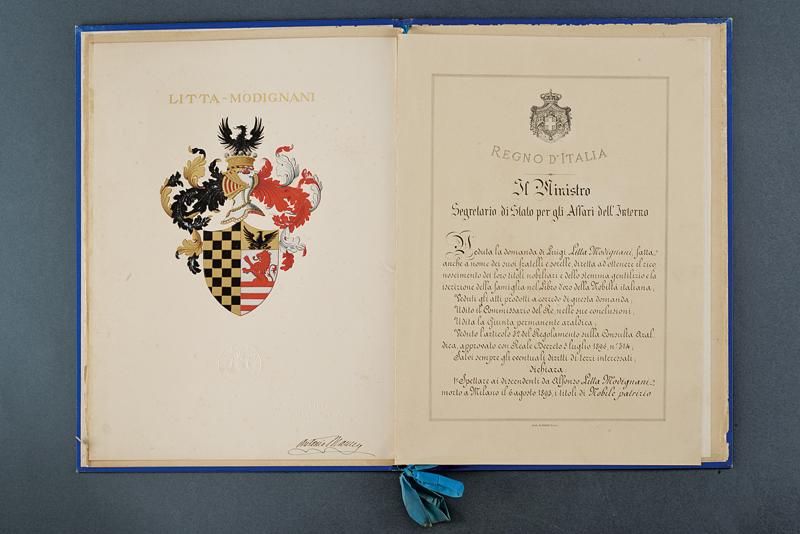 LITTA-MODIGNANI
REGNO D'ITALIA
Il Ministro
Segretario di Stato per gli Affari dell'Interno
Veduta la domanda di Luigi Litta Modignani, fatta
anche a nome dei suoi fratelli e sorelle, diretta ad ottenere il rico
noscimento dei loro titoli nobiliari e dello stemma gentilizio e la
iscrizione della famiglia nel Libro d'oro della Nobiltà italiana,
Veduti gli atti prodotti a corredo di questa domanda;
Udito il Commissario del Re, nelle sue conclusioni;
Udita la Giunta permanente araldica;
Veduto l'articolo 52 del Regolamento sulla Consulta Aral
dica, approvato con Reale Decreto 5 luglio 1896, n° 314;
Salvi sempre gli eventuali diritti di terzi interessati;
dichiara:
1° Spettare ai discendenti da Alfonso Litta Modignani,
morto a Milano il 6 agosto 1893, i titoli di Nobile patrizio